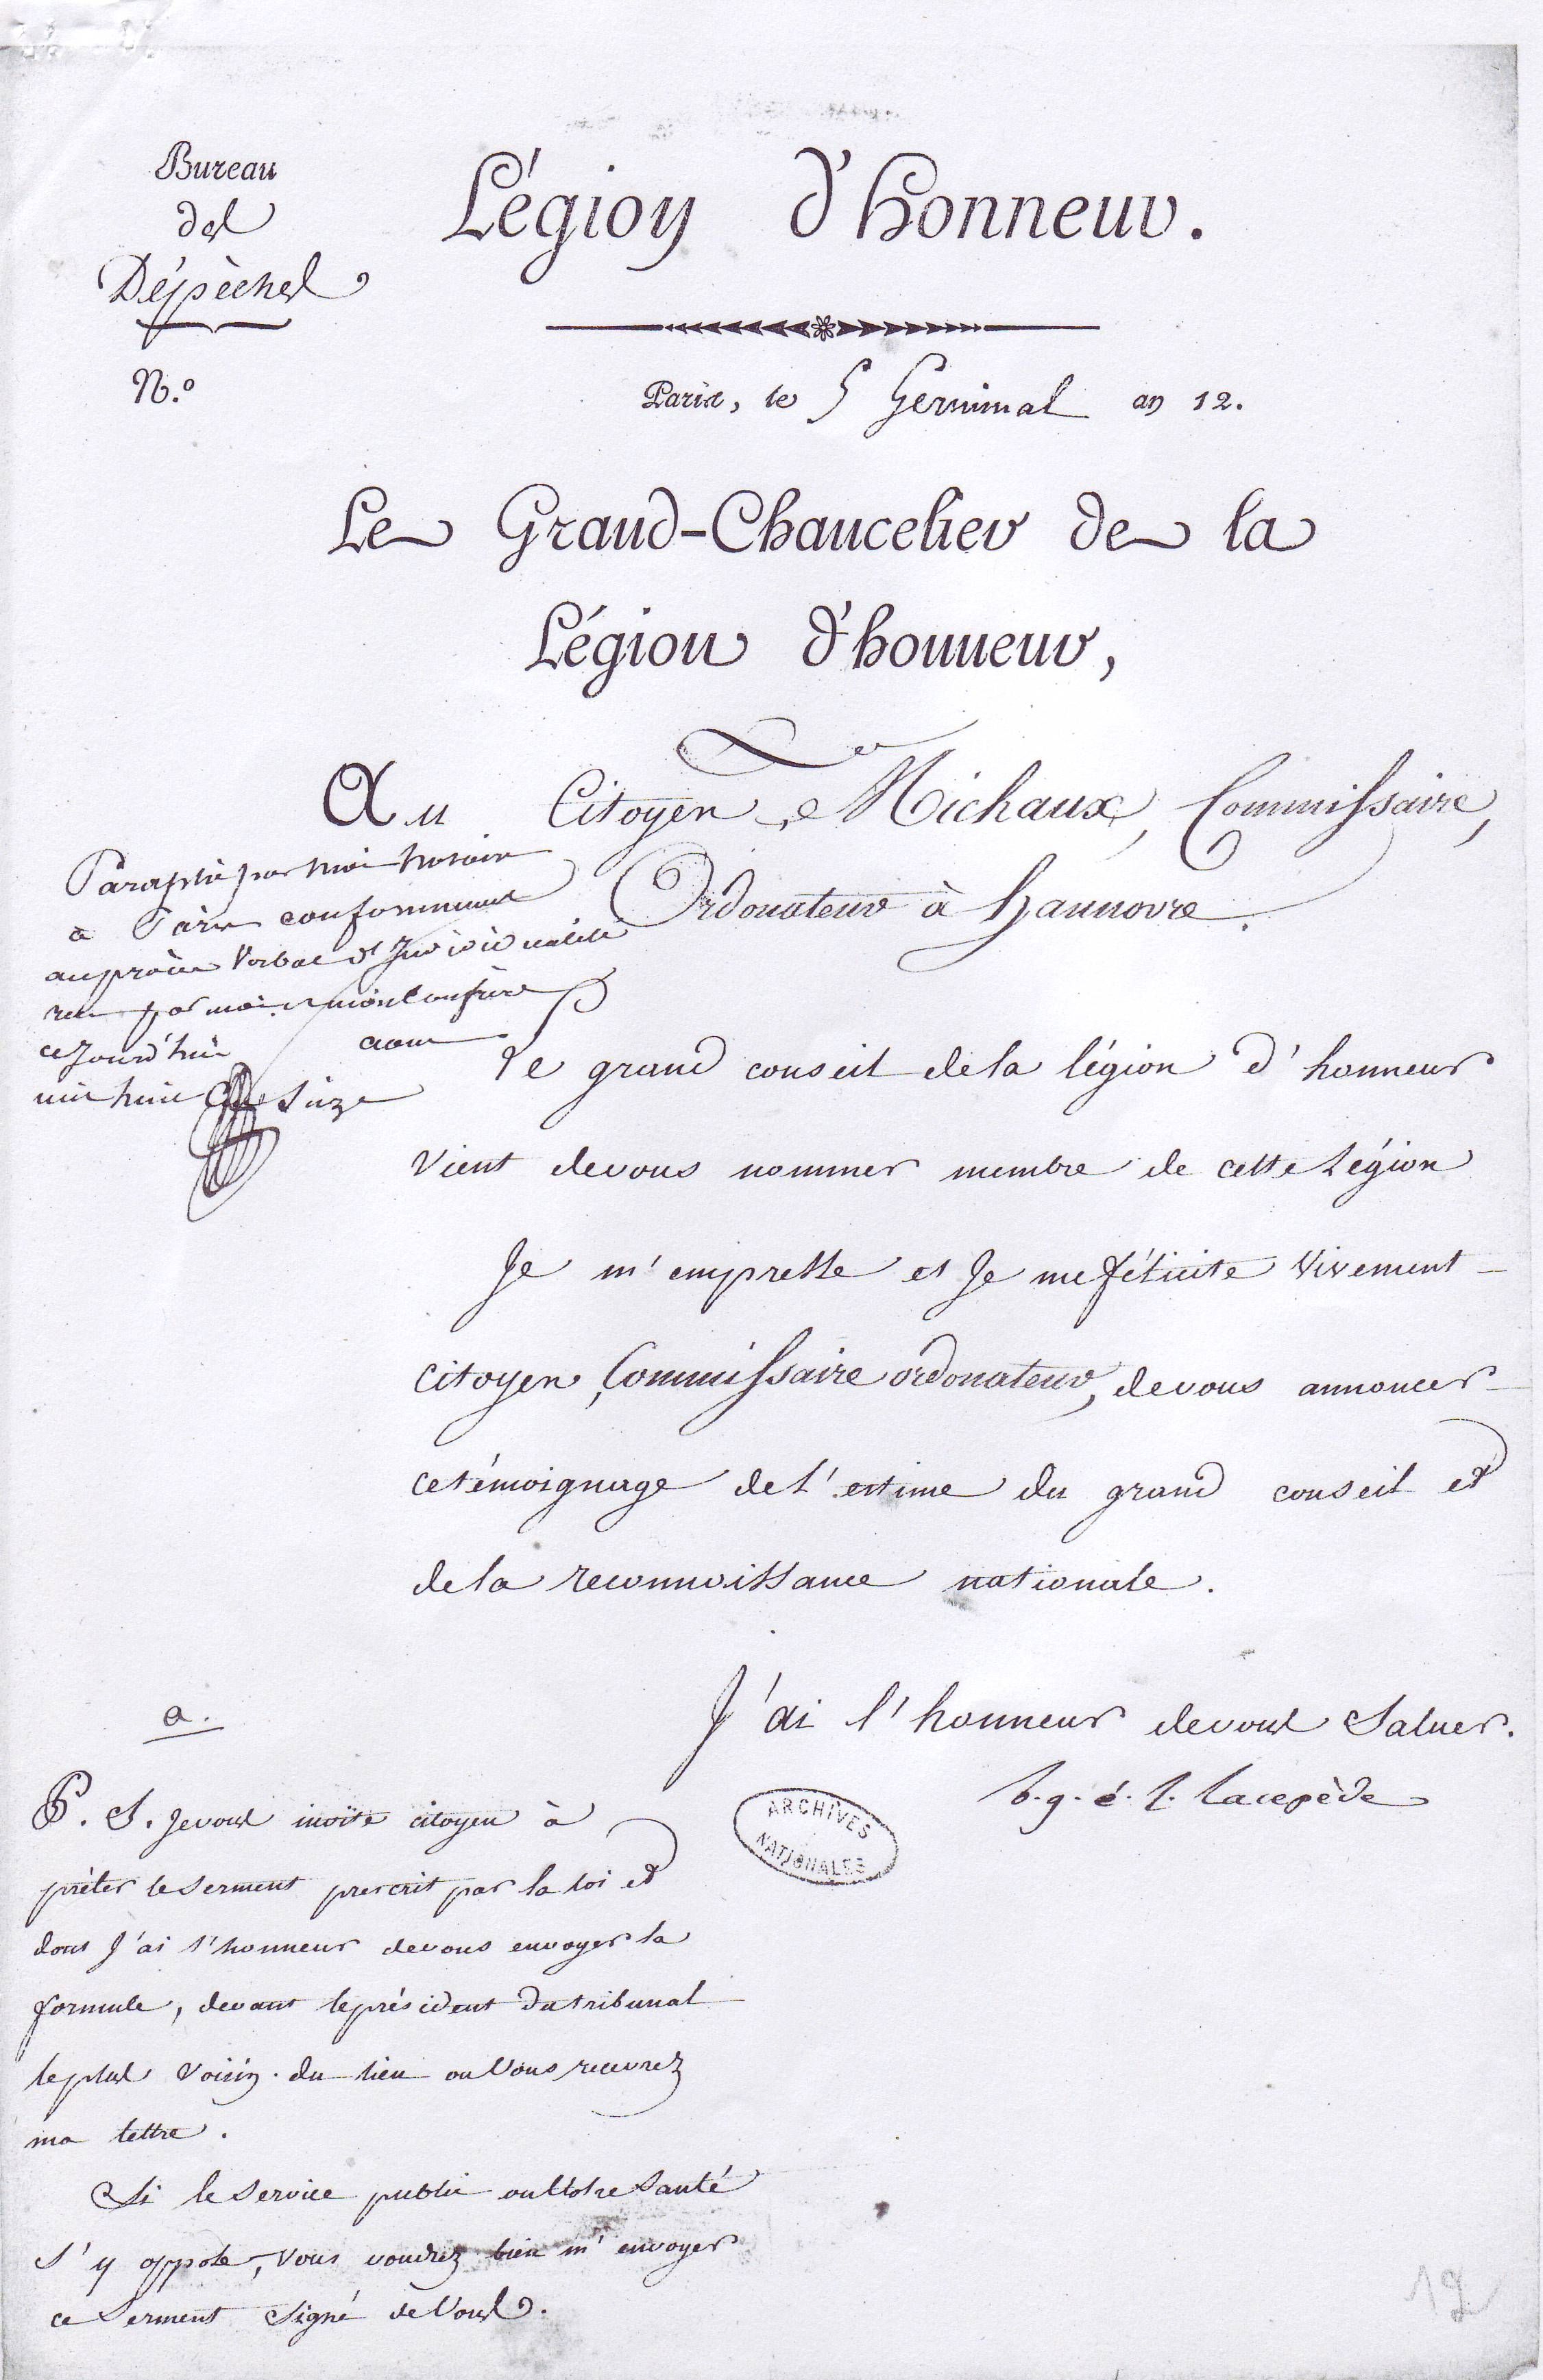 Bureau
des
Dépêches
N.º
Légion d'honneur.
Paris, le 5 Germinal an 12.
Le Grand-Chancelier de la
Légion d'honneur,
Au Citoyen Michaux, Commissaire,
Ordonateur à hannovre.
Paraphé par moi notaire
a Paris conformément
au procès Verbal d'Individualité
reçu par moi et mon Confrère
cejourd'hui aout
mil huit Suze
Le grand conseil de la légion d'honneur
vient de vous nommer membre de cette Légion
Je m'empresse et Je me félicite vivement
citoyen, Commissaire ordonateur, de vous annoncer
ce témoignage de l'estime du grand conseil et
de la reconnoissance nationale.
J'ai l'honneur de vous Saluer.
b. g. é. l. Lacepède
a.
P. S. Je vous invite citoyen à
prêter le Serment prescrit par la loi et
dont J'ai l'honneur de vous envoyer la
formule, devant le président du tribunal
le plus voisin du lieu ou Vous recevrez
ma lettre.
Si le Service public ou Votre Santé
S'y oppose, vous voudrez bien m'envoyer
ce Serment Signé de Vous.
ARCHIVES
NATIONALES
12